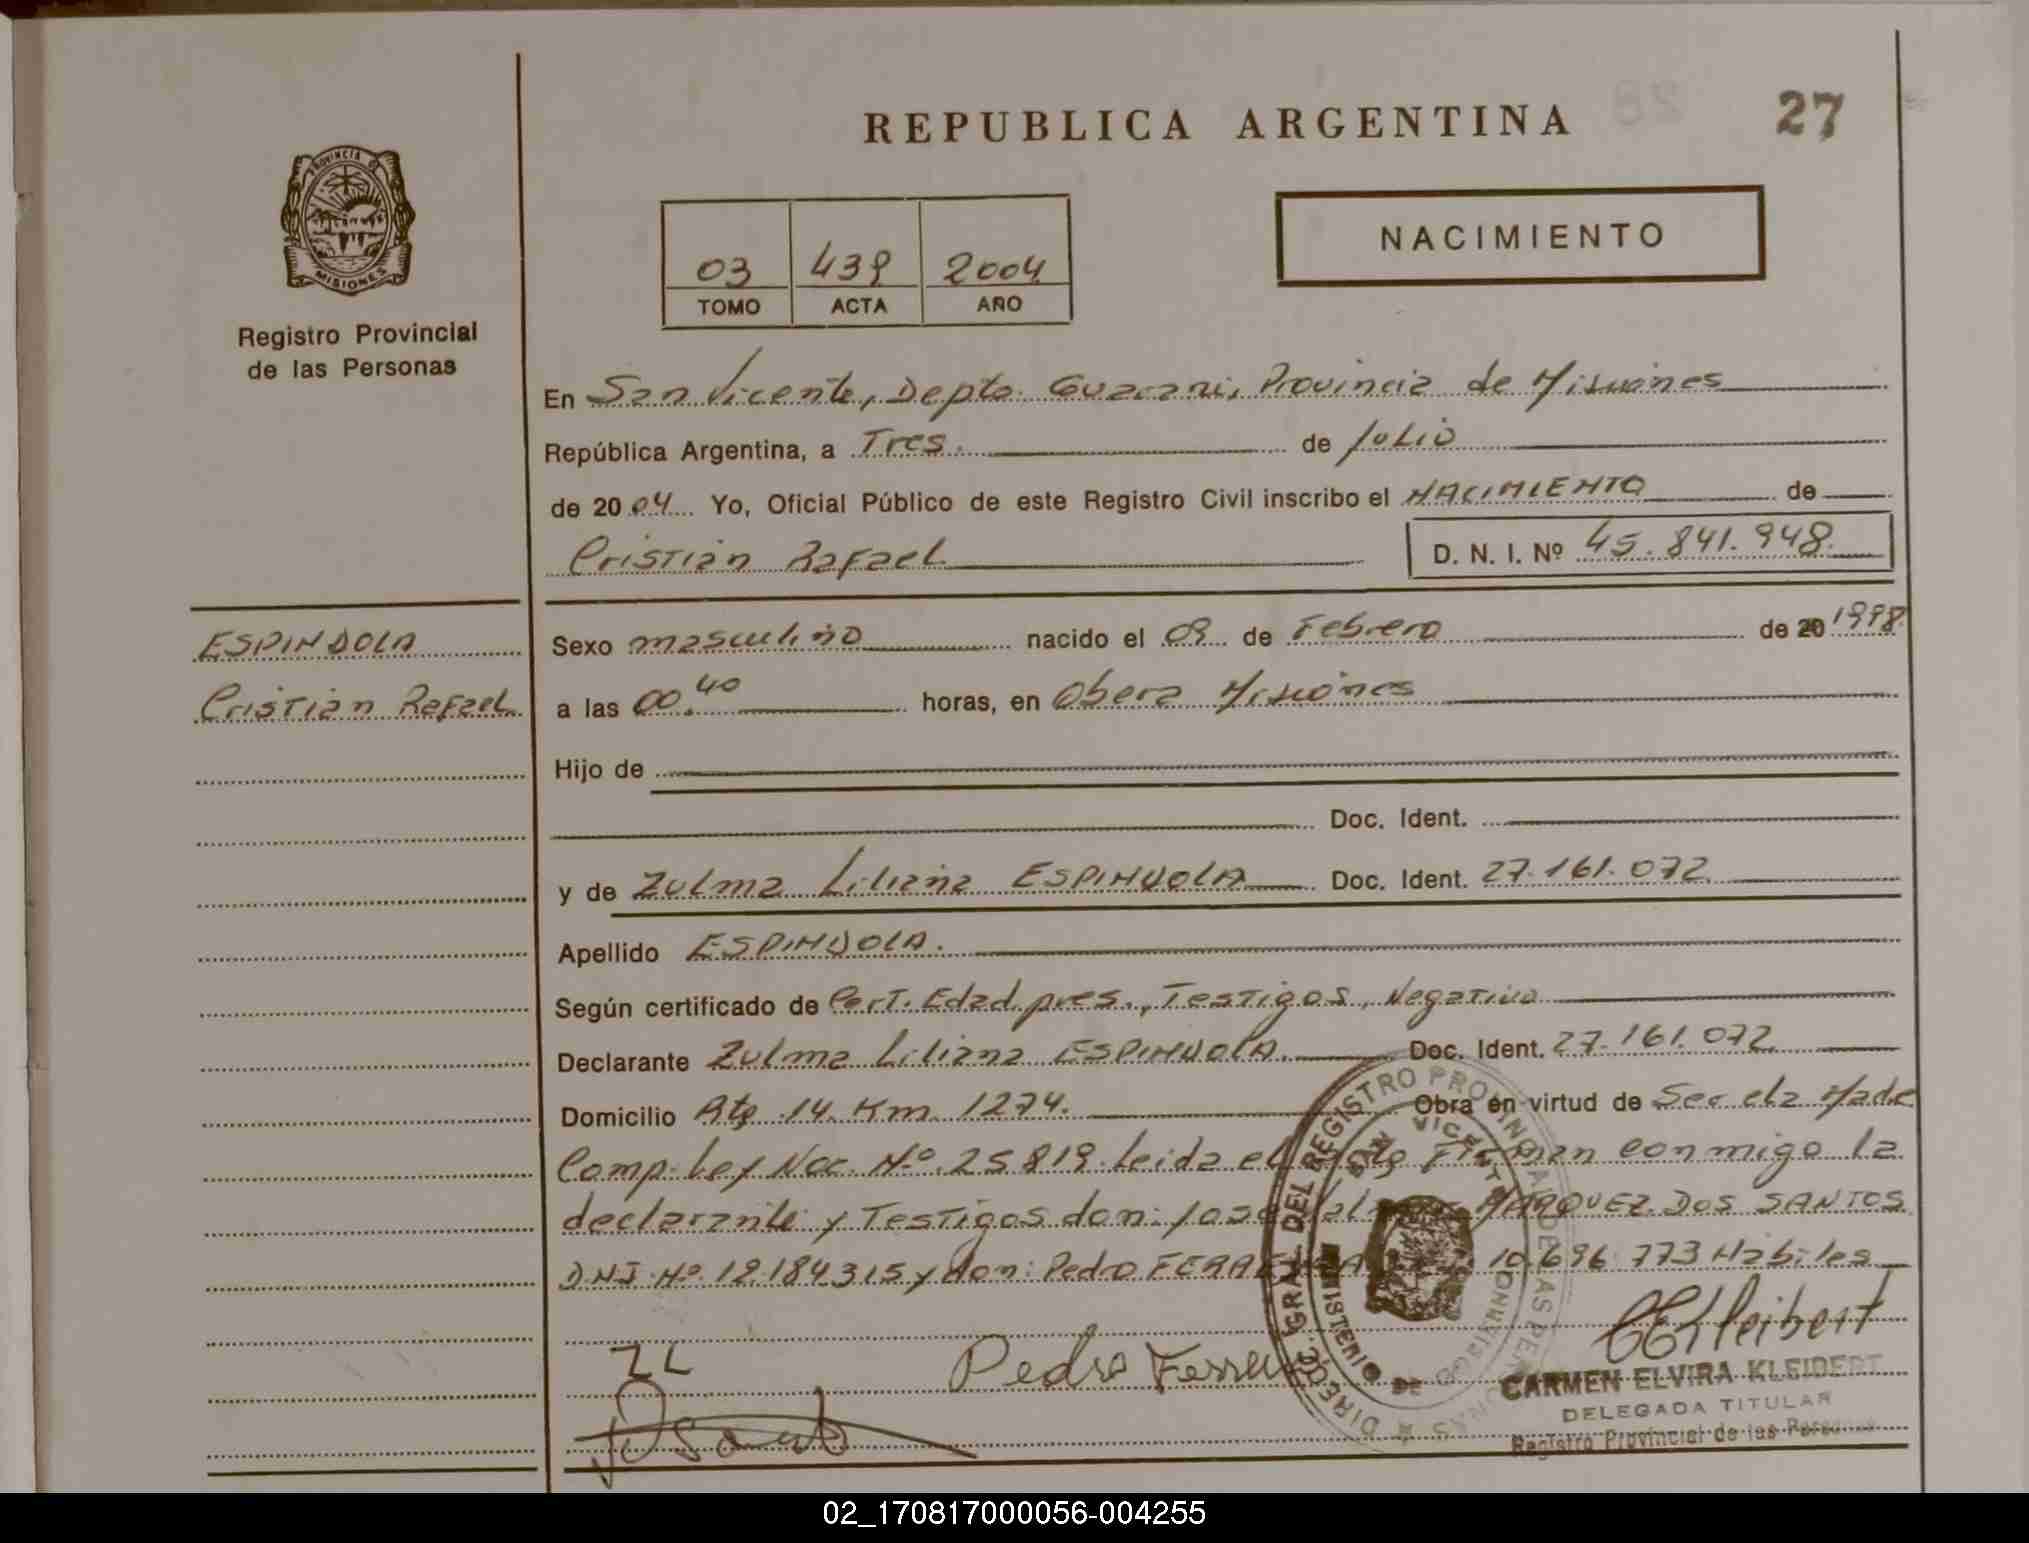 REPUBLICA ARGENTINA
27
PROVINCIA DE
MISIONES
Registro Provincial
de las Personas
03 439 2004
TOMO ACTA AÑO
NACIMIENTO
En San Vicente, Depto. Guarani, Provincia de Misiones
República Argentina, a Tres. de Julio
de 2004 Yo, Oficial Público de este Registro Civil inscribo el NACIMIENTO de
Cristian Rafael D. N. I. Nº 45.841.948.
ESPINDOLA
Cristian Rafael
Sexo masculino nacido el 09 de Febrero de 20 1998
a las 00.40 horas, en Obera Misiones
Hijo de
Doc. Ident.
y de Zulma Liliana ESPINDOLA Doc. Ident. 27.161.072
Apellido ESPINDOLA.
Según certificado de Cert. Edad pres., Testigos, Negativo
Declarante Zulma Liliana ESPINDOLA. Doc. Ident. 27.161.072
Domicilio Rta 14 Km 1274. Obra en virtud de Ser la Madre
Comp. Ley Nac. Nº 25819. Leida el Firman conmigo la
declarante y Testigos don: Jose MARQUEZ DOS SANTOS
DNI Nº 12.184315 y don: Pedro 10.696.773 Habiles
ZL
Pedro
CEKleibert
CARMEN ELVIRA KLEIBERT
DELEGADA TITULAR
Registro Provincial de las Personas
02_170817000056-004255